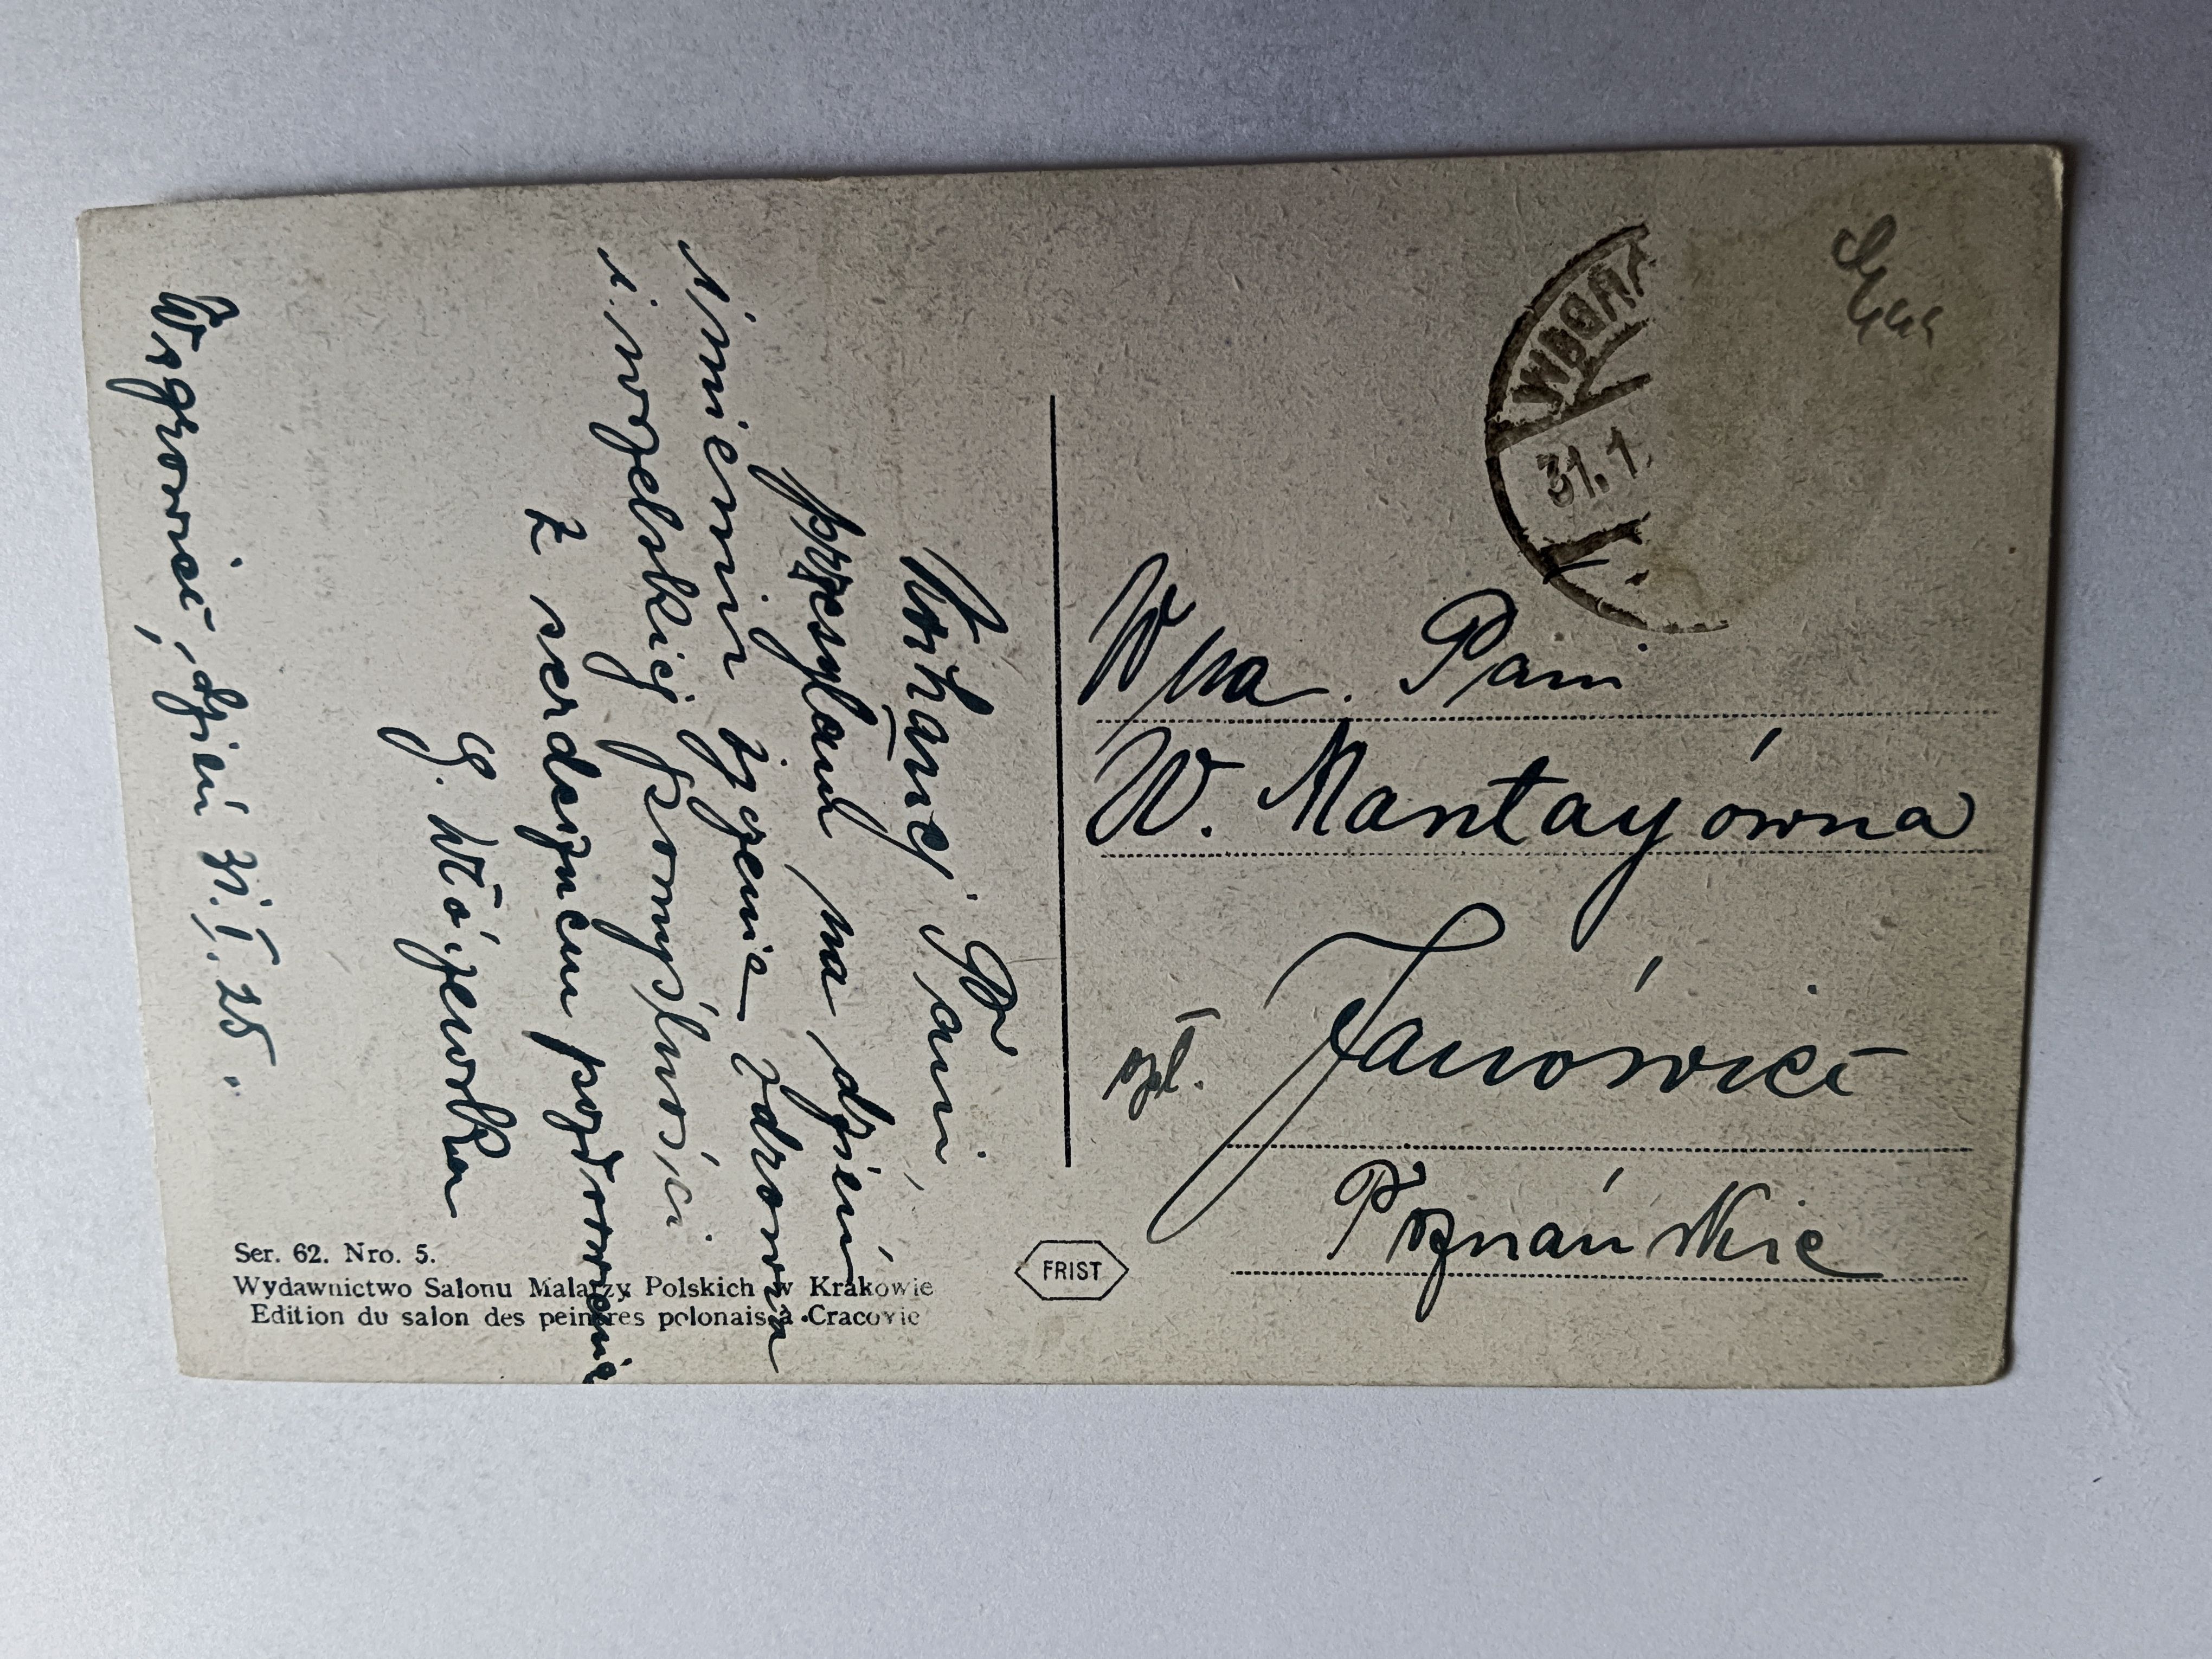 Kochanej Pani,
przesyłam na dzień
imienin życzenia zdrowia
i wszelkiej pomyślności
z serdecznem pozdrowieniem
G. Wójewska
Wągrowiec, dzień 31.I.25.
Wna. Pani
W. Mantayówna
Janówiec
Poznańskie
31.1.
Ser. 62. Nro. 5.
Wydawnictwo Salonu Malarzy Polskich w Krakowie
Edition du salon des peintres polonais à Cracovie
FRIST